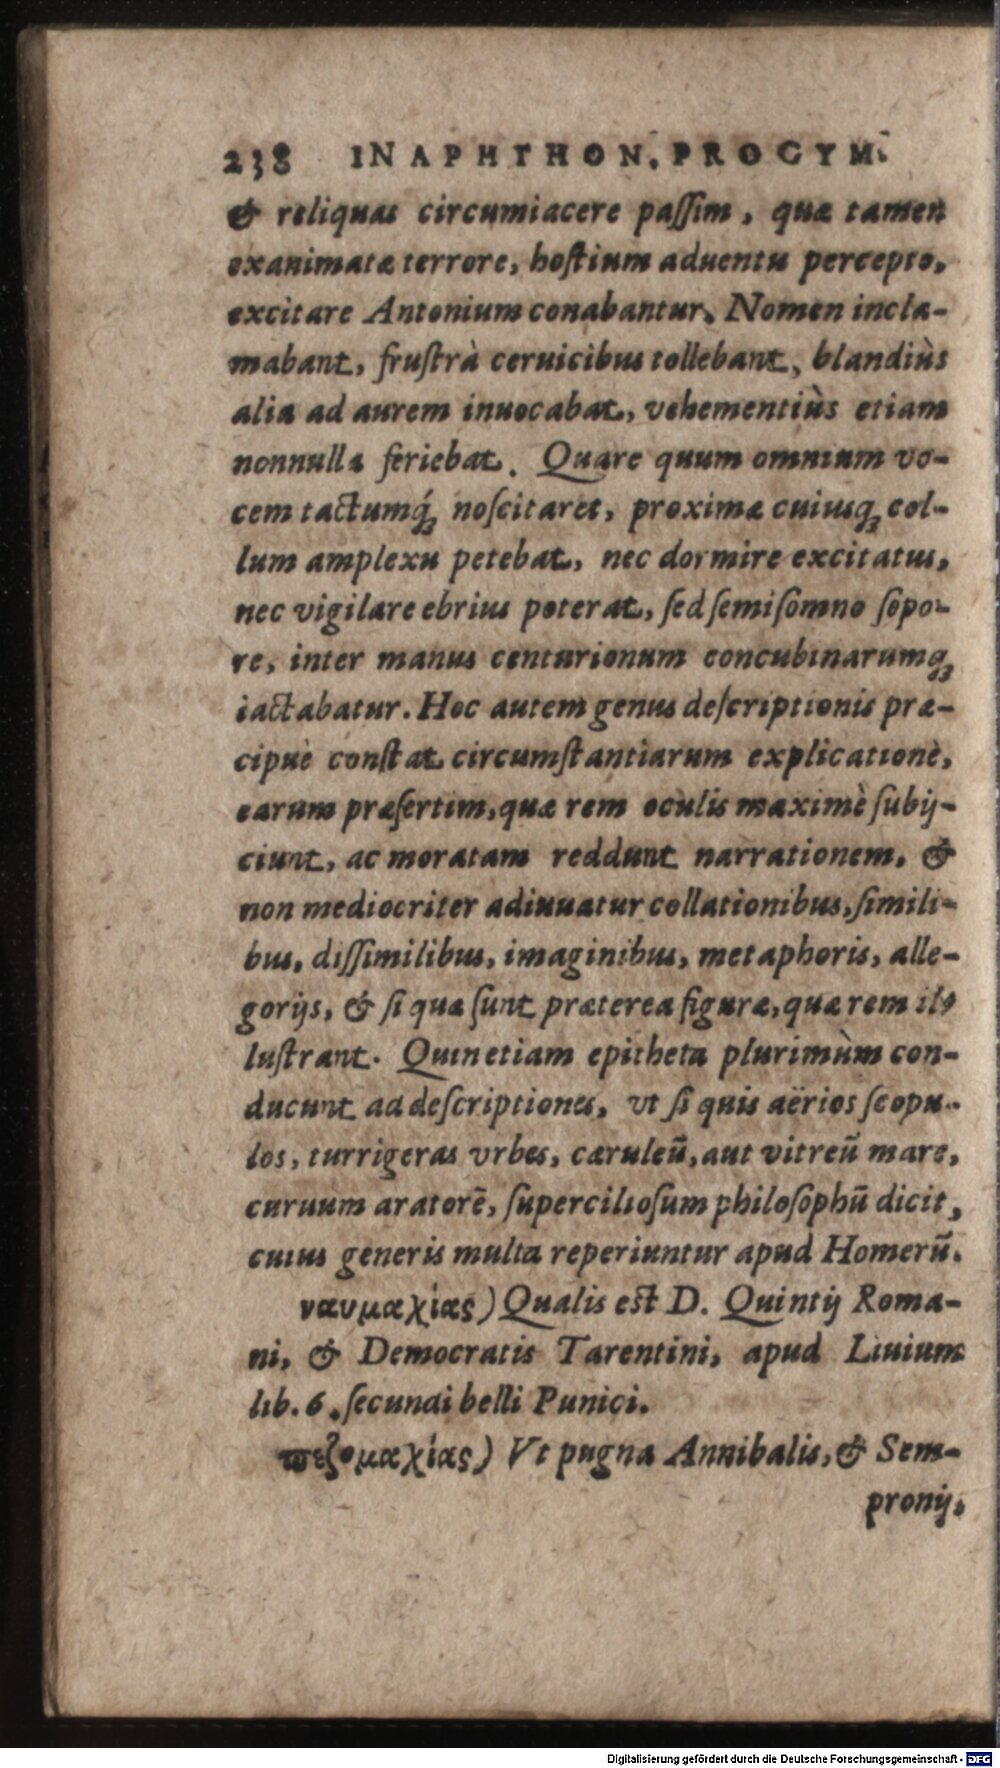 238 IN APHTHON. PROGYM.
& reliquas circumiacere paſſim, quæ tamen
exanimatæ terrore, hoſtium aduentu percepto,
excitare Antonium conabantur. Nomen incla-
mabant, fruſtrà ceruicibus tollebant, blandiùs
alia ad aurem inuocabat, vehementiùs etiam
nonnulla feriebat. Quare quum omnium vo-
cem tactumq́ꝫ noſcitaret, proximæ cuiusqꝫ col-
lum amplexu petebat, nec dormire excitatus,
nec vigilare ebrius poterat, ſed ſemiſomno ſopo-
re, inter manus centurionum concubinarumqꝫ
iactabatur. Hoc autem genus deſcriptionis præ-
cipuè conſtat circumſtantiarum explicationè,
earum præſertim, quæ rem oculis maximè ſubij-
ciunt, ac moratam reddunt narrationem, &
non mediocriter adiuuatur collationibus, ſimili-
bus, diſſimilibus, imaginibus, metaphoris, alle-
gorijs, & ſi qua ſunt præterea figuræ, quæ rem il-
luſtrant. Quinetiam epitheta plurimùm con-
ducunt ad deſcriptiones, vt ſi quis aërios ſcopu-
los, turrigeras vrbes, cæruleū, aut vitreū mare,
curuum aratorē, ſupercilioſum philoſophū dicit,
cuius generis multa reperiuntur apud Homerū.
ναυμαχίας) Qualis est D. Quintij Roma-
ni, & Democratis Tarentini, apud Liuium
lib. 6. ſecundi belli Punici.
πεζομαχίας) Vt pugna Annibalis, & Sem-
pronij,
Digitalisierung gefördert durch die Deutsche Forschungsgemeinschaft - DFG